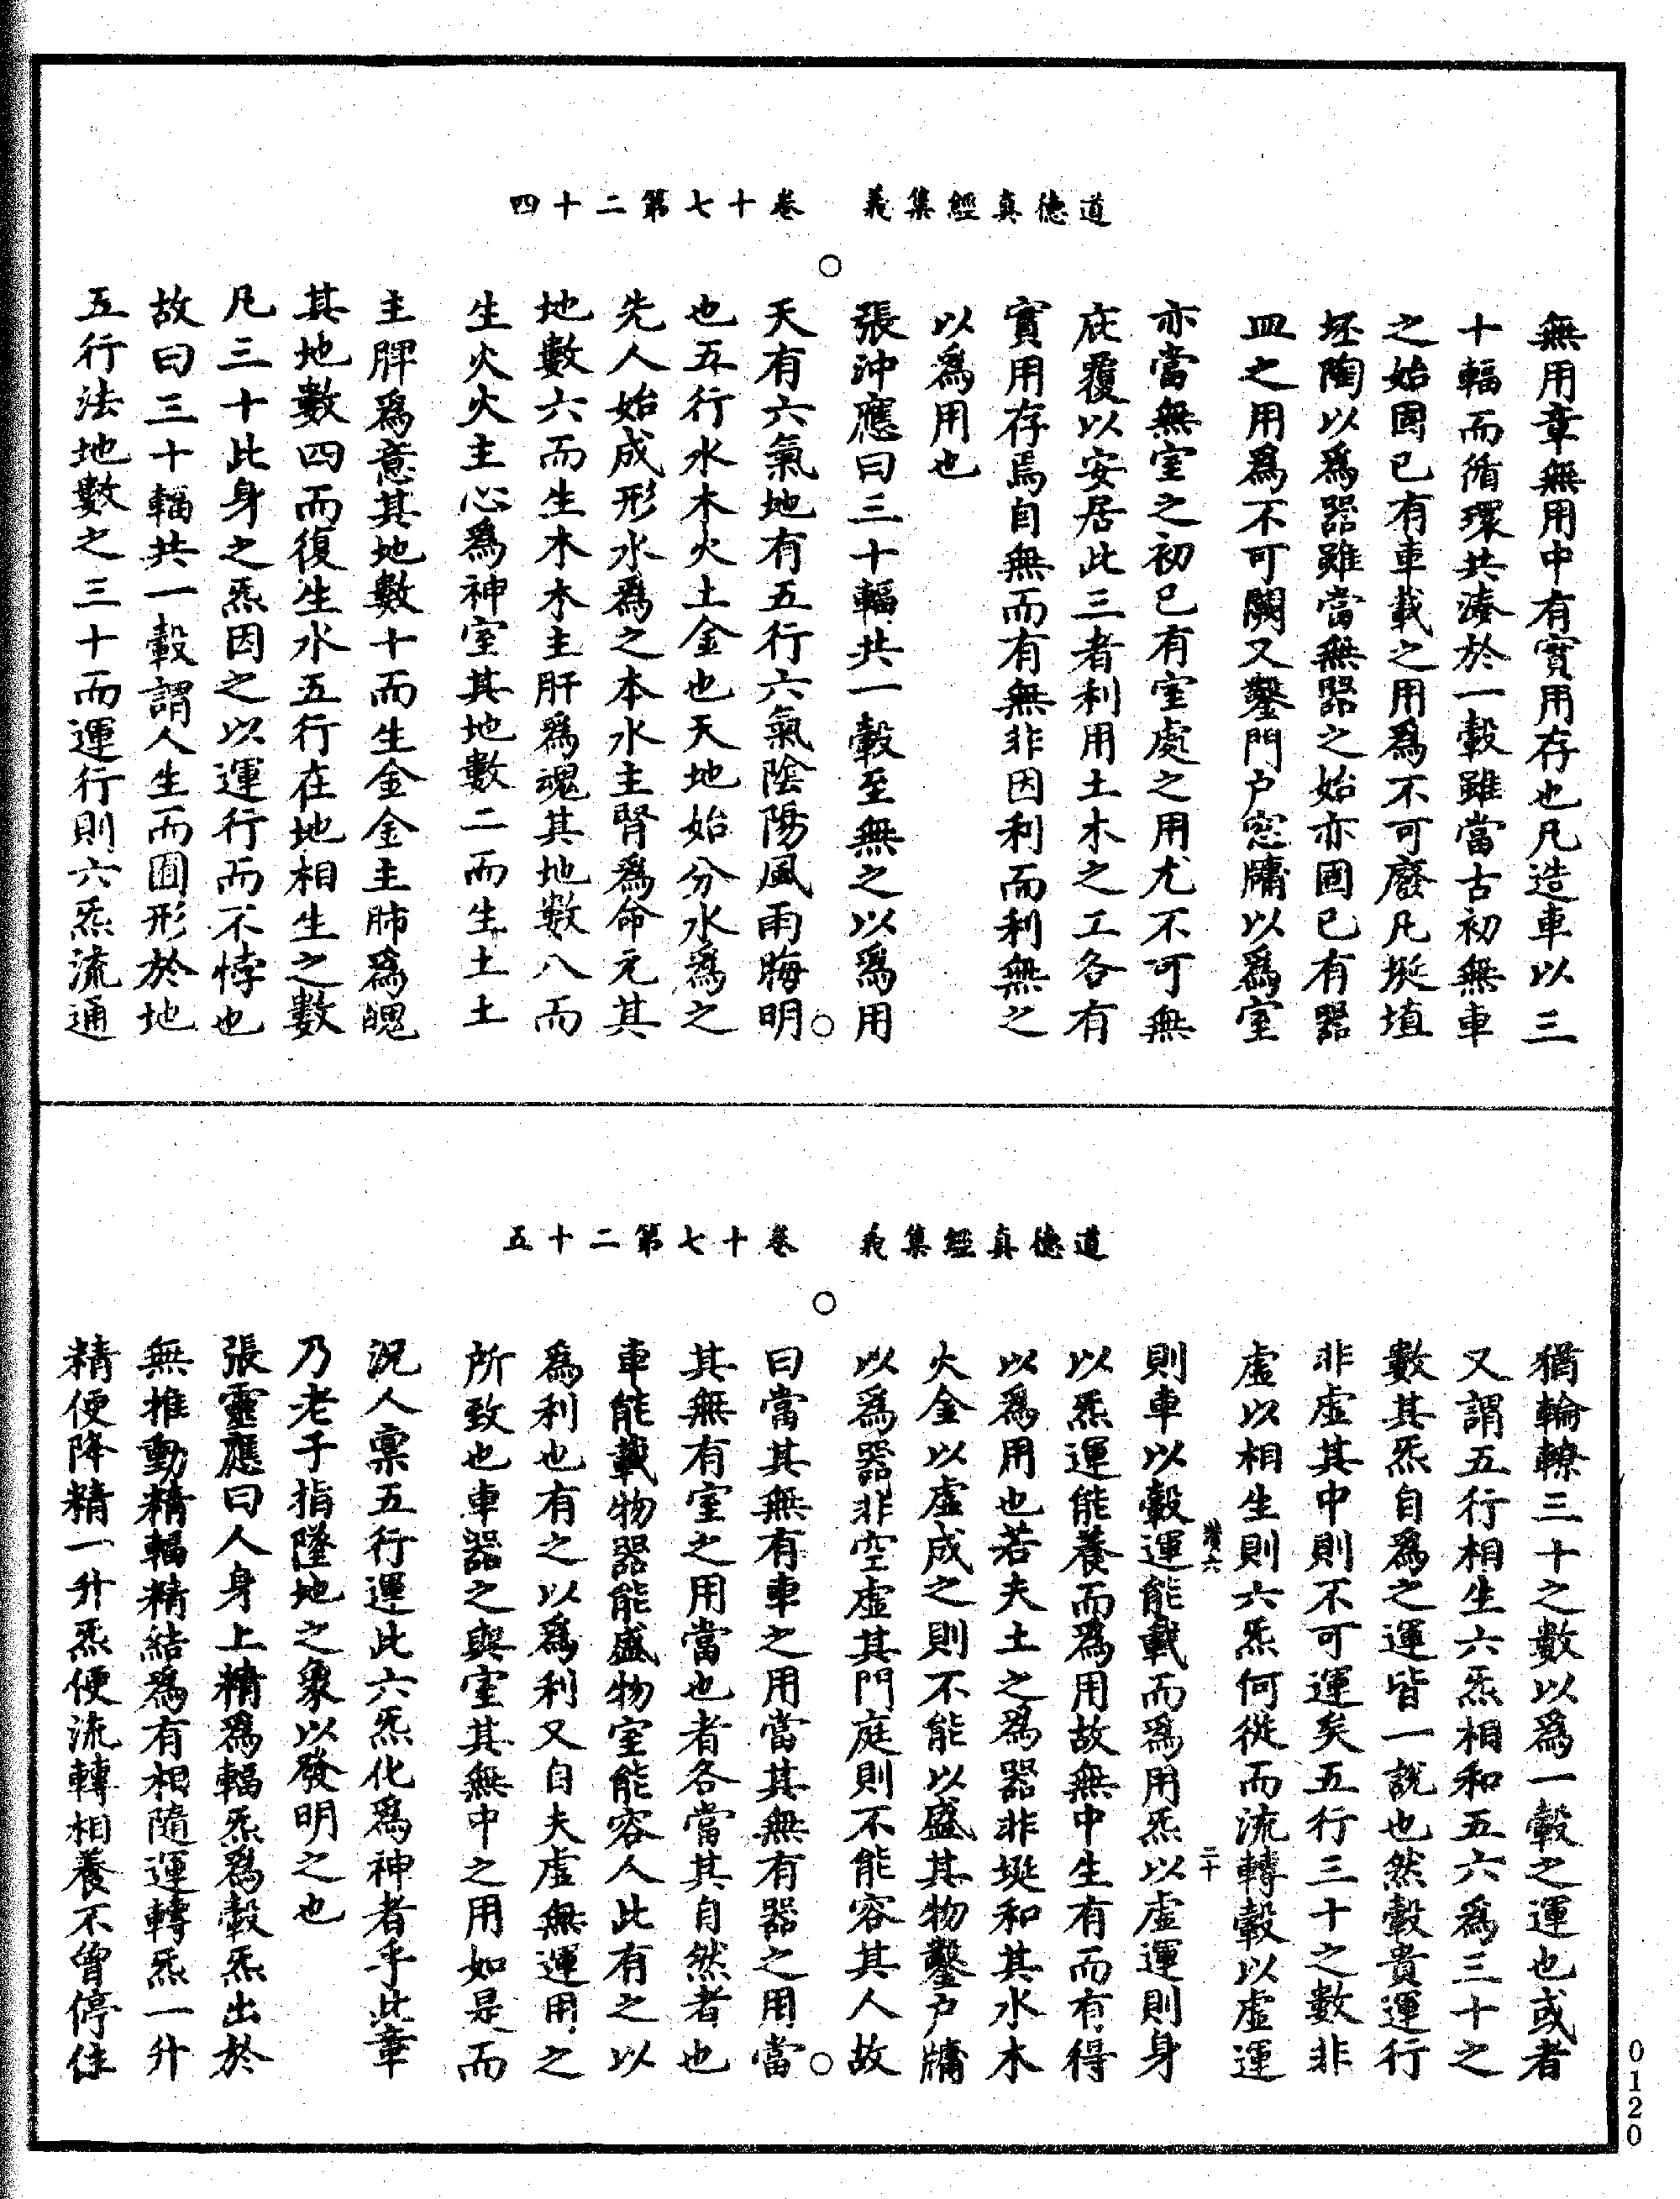 道德真經集義　卷十七第二十四
無用章無用中有實用存也凡造車以三
十輻而循環共湊於一轂雖當古初無車
之始固已有車載之用爲不可廢凡埏埴
坯陶以爲器雖當無器之始亦固已有器
皿之用爲不可闕又鑿門户窓牖以爲室
亦當無室之初已有室處之用尤不可無
庇覆以安居此三者利用土木之工各有
實用存焉自無而有無非因利而利無之
以爲用也
張沖應曰三十輻共一轂至無之以爲用
天有六氣地有五行六氣陰陽風雨晦明
也五行水木火土金也天地始分水爲之
先人始成形水爲之本水主腎爲命元其
地數六而生木木主肝爲魂其地數八而
生火火主心爲神室其地數二而生土土
主脾爲意其地數十而生金金主肺爲魄
其地數四而復生水五行在地相生之數
凡三十此身之炁因之以運行而不悖也
故曰三十輻共一轂謂人生而囿形於地
五行法地數之三十而運行則六炁流通
道德真經集義　卷十七第二十五
猶輪轑三十之數以爲一轂之運也或者
又謂五行相生六炁相和五六爲三十之
數其炁自爲之運皆一說也然轂貴運行
非虛其中則不可運矣五行三十之數非
虛以相生則六炁何從而流轉轂以虛運
則車以轂運能載而爲用炁以虛運則身
以炁運能養而爲用故無中生有而有得
以爲用也若夫土之爲器非埏和其水木
火金以虛成之則不能以盛其物鑿户牖
以爲器非空虛其門庭則不能容其人故
曰當其無有車之用當其無有器之用當
其無有室之用當也者各當其自然者也
車能載物器能盛物室能容人此有之以
爲利也有之以爲利又自夫虛無運用之
所致也車器之與室其無中之用如是而
況人稟五行運此六炁化爲神者乎此章
乃老子指墜地之象以發明之也
張靈應曰人身上精爲輻炁爲轂炁出於
無推動精輻精結爲有相隨運轉炁一升
精便降精一升炁便流轉相養不曾停住
二十
0120